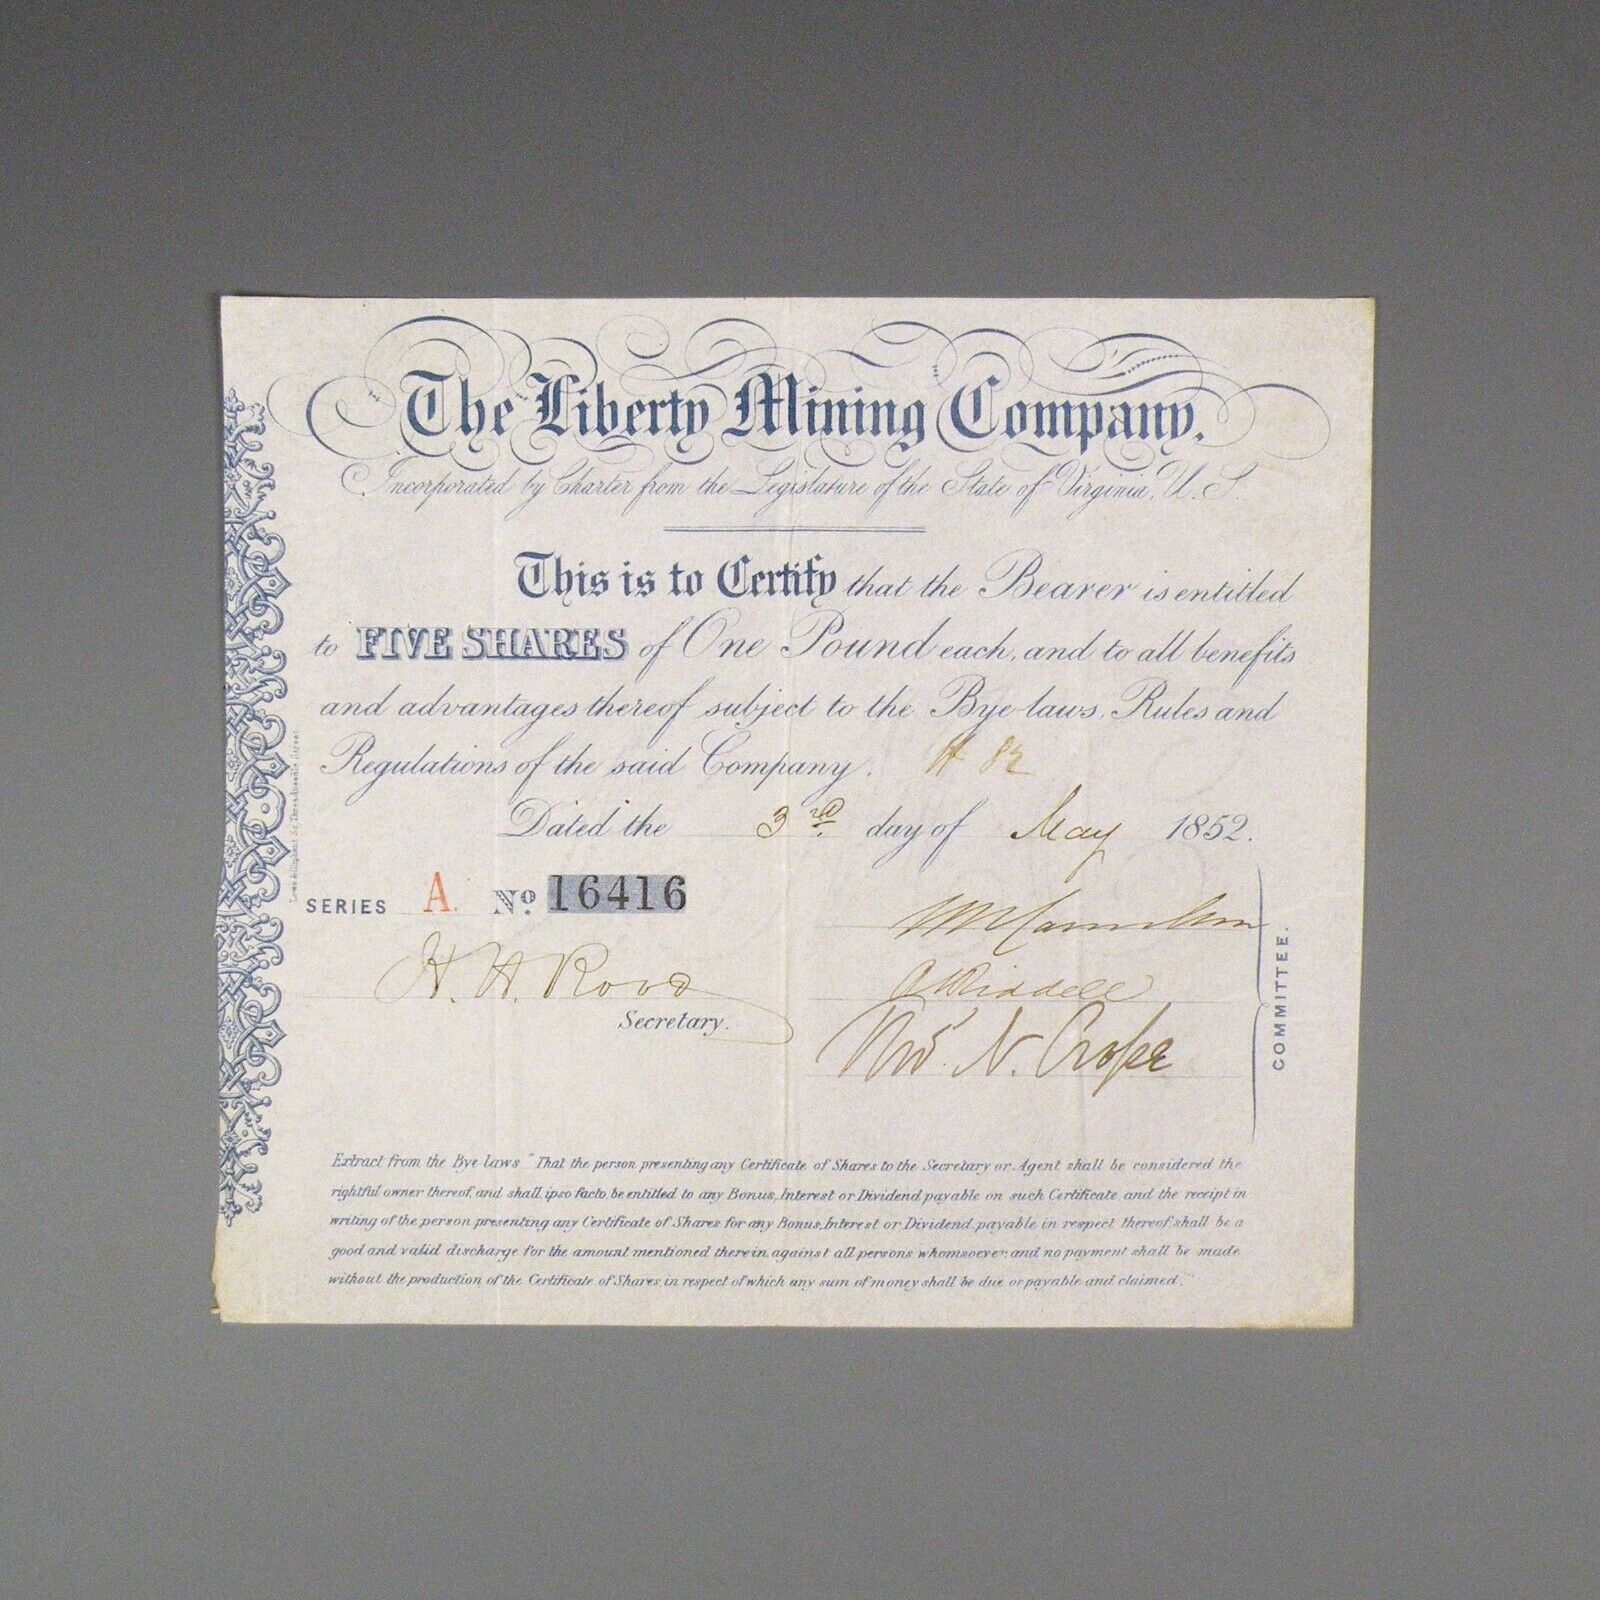 The Liberty Mining Company.
Incorporated by Charter from the Legislature of the State of Virginia, U.S.
This is to Certify that the Bearer is entitled
to FIVE SHARES of One Pound each, and to all benefits
and advantages thereof subject to the Bye-laws, Rules and
Regulations of the said Company.
Dated the 3rd day of May 1852.
SERIES A. No 16416
H. H. Rood
Secretary.
A Riddell
Thos. N. Crofse
COMMITTEE.
Extract from the Bye-laws "That the person presenting any Certificate of Shares to the Secretary or Agent shall be considered the
rightful owner thereof, and shall ipso facto, be entitled to any Bonus, Interest or Dividend payable on such Certificate and the receipt in
writing of the person presenting any Certificate of Shares for any Bonus, Interest or Dividend, payable in respect thereof, shall be a
good and valid discharge for the amount mentioned therein, against all persons whomsoever; and no payment shall be made
without the production of the Certificate of Shares, in respect of which any sum of money shall be due or payable and claimed."